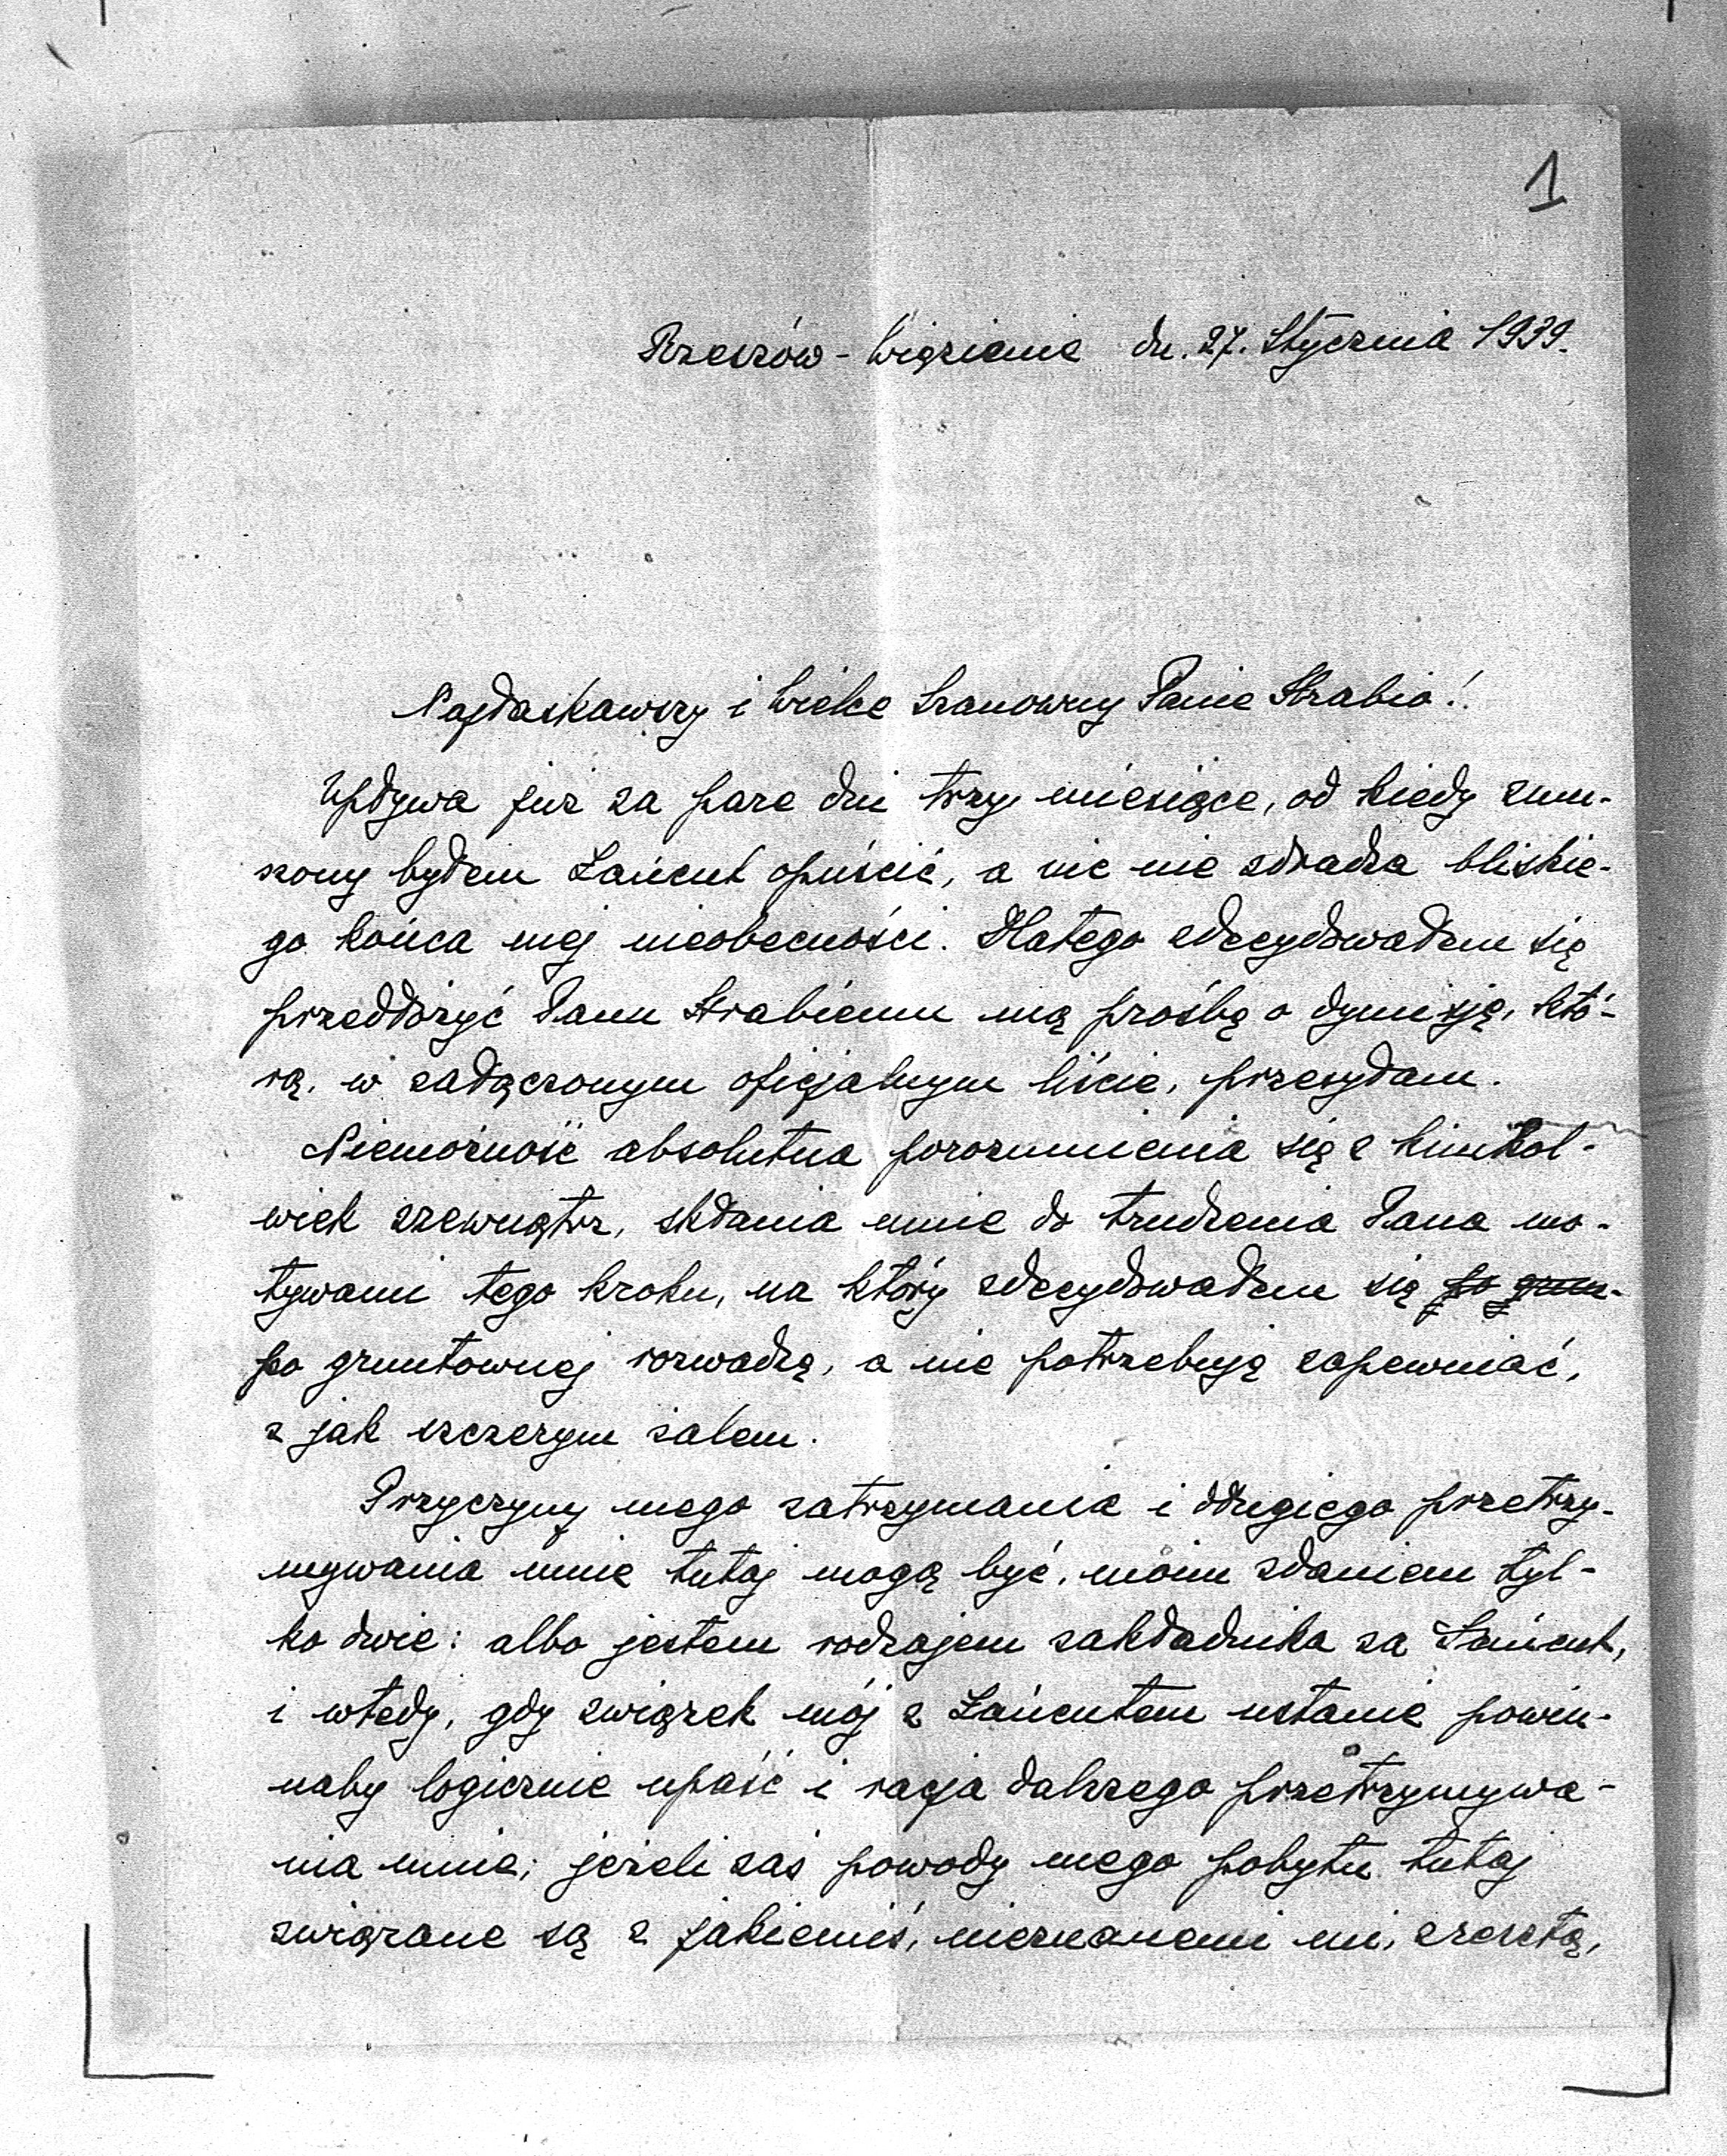 1
Rzeszów - Więzienie dn. 27. Stycznia 1939.
Najłaskawszy i Wielce Szanowny Panie Hrabio!
Upływa już za parę dni trzy miesiące, od kiedy zmu-
szony byłem Łańcut opuścić, a nic nie zdradza bliskie-
go końca mej nieobecności. Dlatego zdecydowałem się
przedłożyć Panu Hrabiemu mą prośbę o dymisję, któ-
rą, w załączonym oficjalnym liście, przesyłam.
Niemożność absolutna porozumienia się z kimkol-
wiek zzewnątrz, skłania mnie do trudzenia Pana mo-
tywami tego kroku, na który zdecydowałem się po grun-
po gruntownej rozwadzę, a nie potrzebuję zapewniać,
z jak szczerym żalem.
Przyczyny mego zatrzymania i długiego przetrzy-
mywania mnie tutaj mogą być, moim zdaniem tyl-
ko dwie: albo jestem rodzajem zakładnika za Łańcut,
i wtedy, gdy związek mój z Łańcutem ustanie powin-
naby logicznie upaść i racja dalszego przetrzymywa-
nia mnie; jeżeli zaś powody mego pobytu tutaj
związane są z jakiemiś, nieznanemi mi, zresztą,